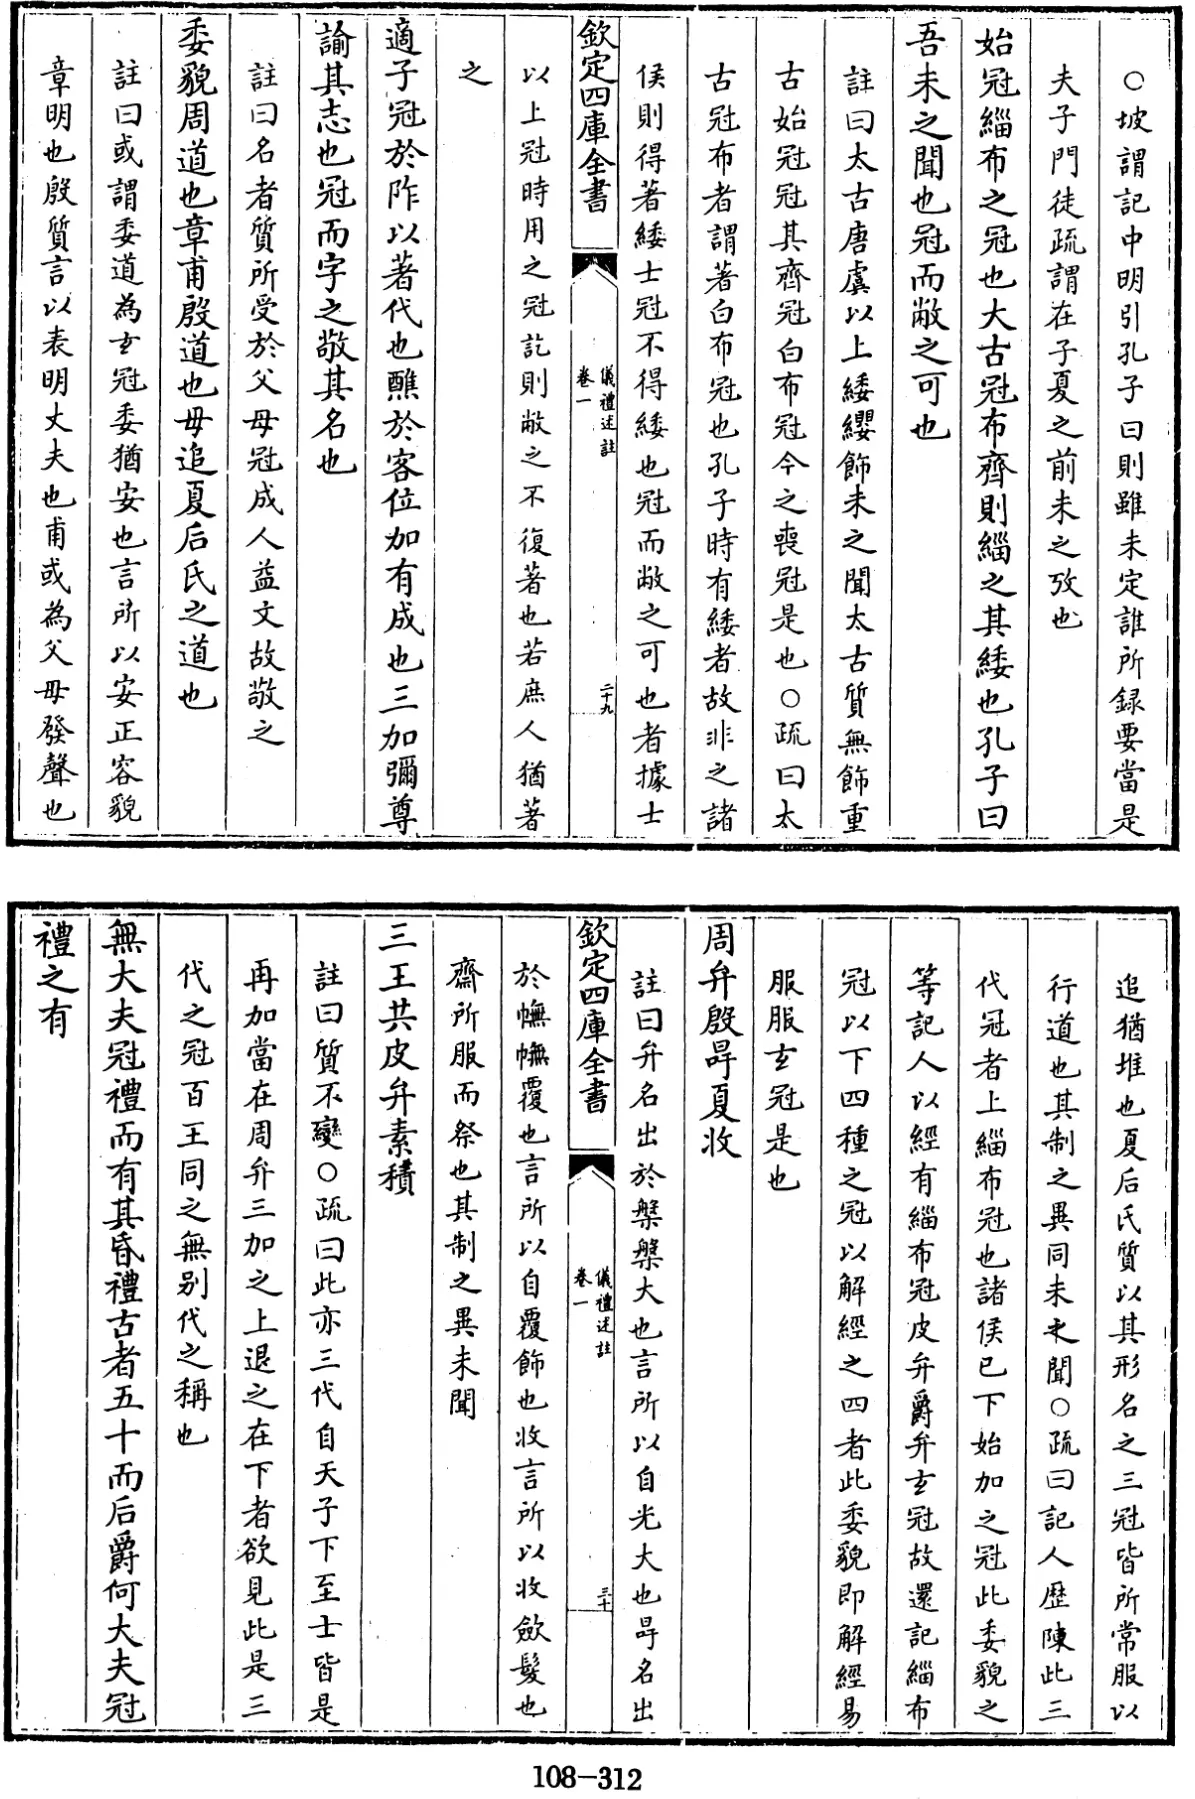 ○坡謂記中明引孔子曰則雖未定誰所録要當是
夫子門徒疏謂在子夏之前未之攷也
始冠緇布之冠也大古冠布齊則緇之其緌也孔子曰
吾未之聞也冠而敝之可也
註曰太古唐虞以上緌纓飾未之聞太古質無飾重
古始冠冠其齊冠白布冠今之喪冠是也○疏曰太
古冠布者謂著白布冠也孔子時有緌者故非之諸
侯則得著緌士冠不得緌也冠而敝之可也者據士
欽定四庫全書
儀禮述註
卷一
二十九
以上冠時用之冠訖則敝之不復著也若庶人猶著
之
適子冠於阼以著代也醮於客位加有成也三加彌尊
諭其志也冠而字之敬其名也
註曰名者質所受於父母冠成人益文故敬之
委貌周道也章甫殷道也毋追夏后氏之道也
註曰或謂委道為𤣥冠委猶安也言所以安正容貌
章明也殷質言以表明丈夫也甫或為父毋發聲也
追猶堆也夏后氏質以其形名之三冠皆所常服以
行道也其制之異同未之聞○疏曰記人歴陳此三
代冠者上緇布冠也諸侯已下始加之冠此委貌之
等記人以經有緇布冠皮弁爵弁𤣥冠故還記緇布
冠以下四種之冠以解經之四者此委貌即解經易
服服𤣥冠是也
周弁殷冔夏收
註曰弁名出於槃槃大也言所以自光大也冔名出
欽定四庫全書
儀禮述註
卷一
三十
於幠幠覆也言所以自覆飾也收言所以收斂髮也
齋所服而祭也其制之異未聞
三王共皮弁素積
註曰質不變○疏曰此亦三代自天子下至士皆是
再加當在周弁三加之上退之在下者欲見此是三
代之冠百王同之無别代之稱也
無大夫冠禮而有其昏禮古者五十而后爵何大夫冠
禮之有
108-312